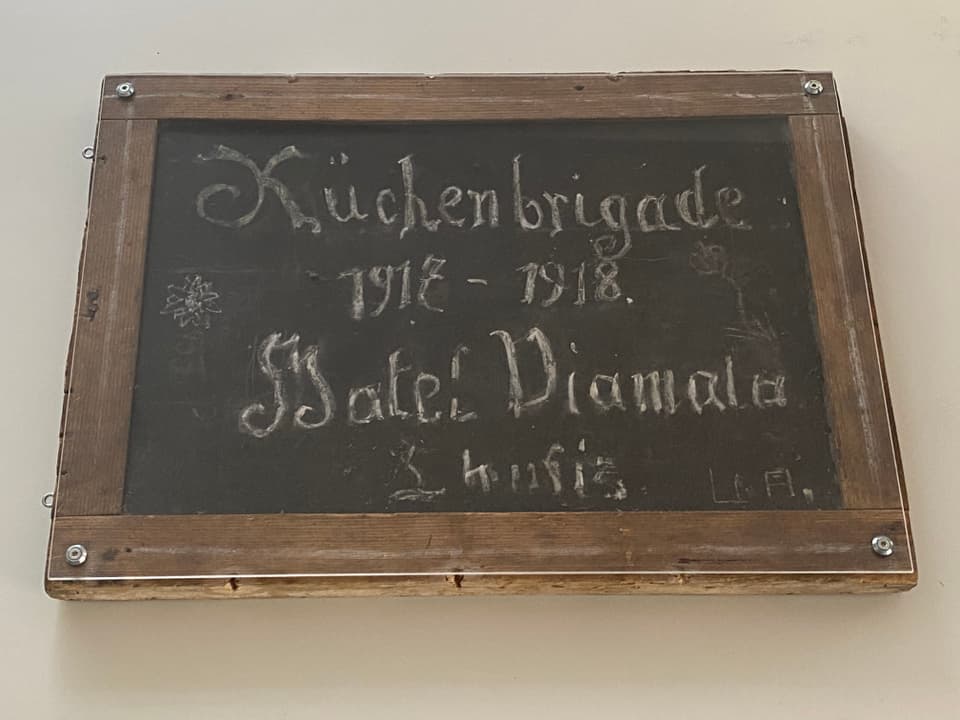 Küchenbrigade
1917 - 1918.
Hotel Viamala
Thusis.